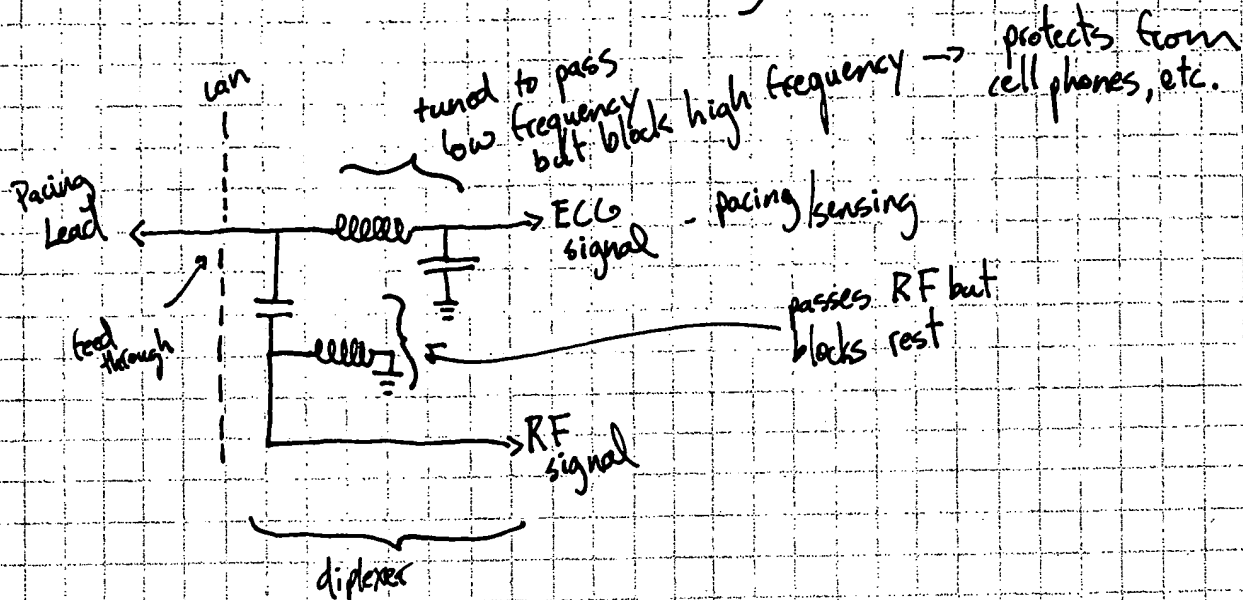 can
tuned to pass
low frequency
but block high frequency → protects from
cell phones, etc.
Pacing
Lead
ECG
signal - pacing/sensing
feed
through
passes RF but
blocks rest
RF
signal
diplexer